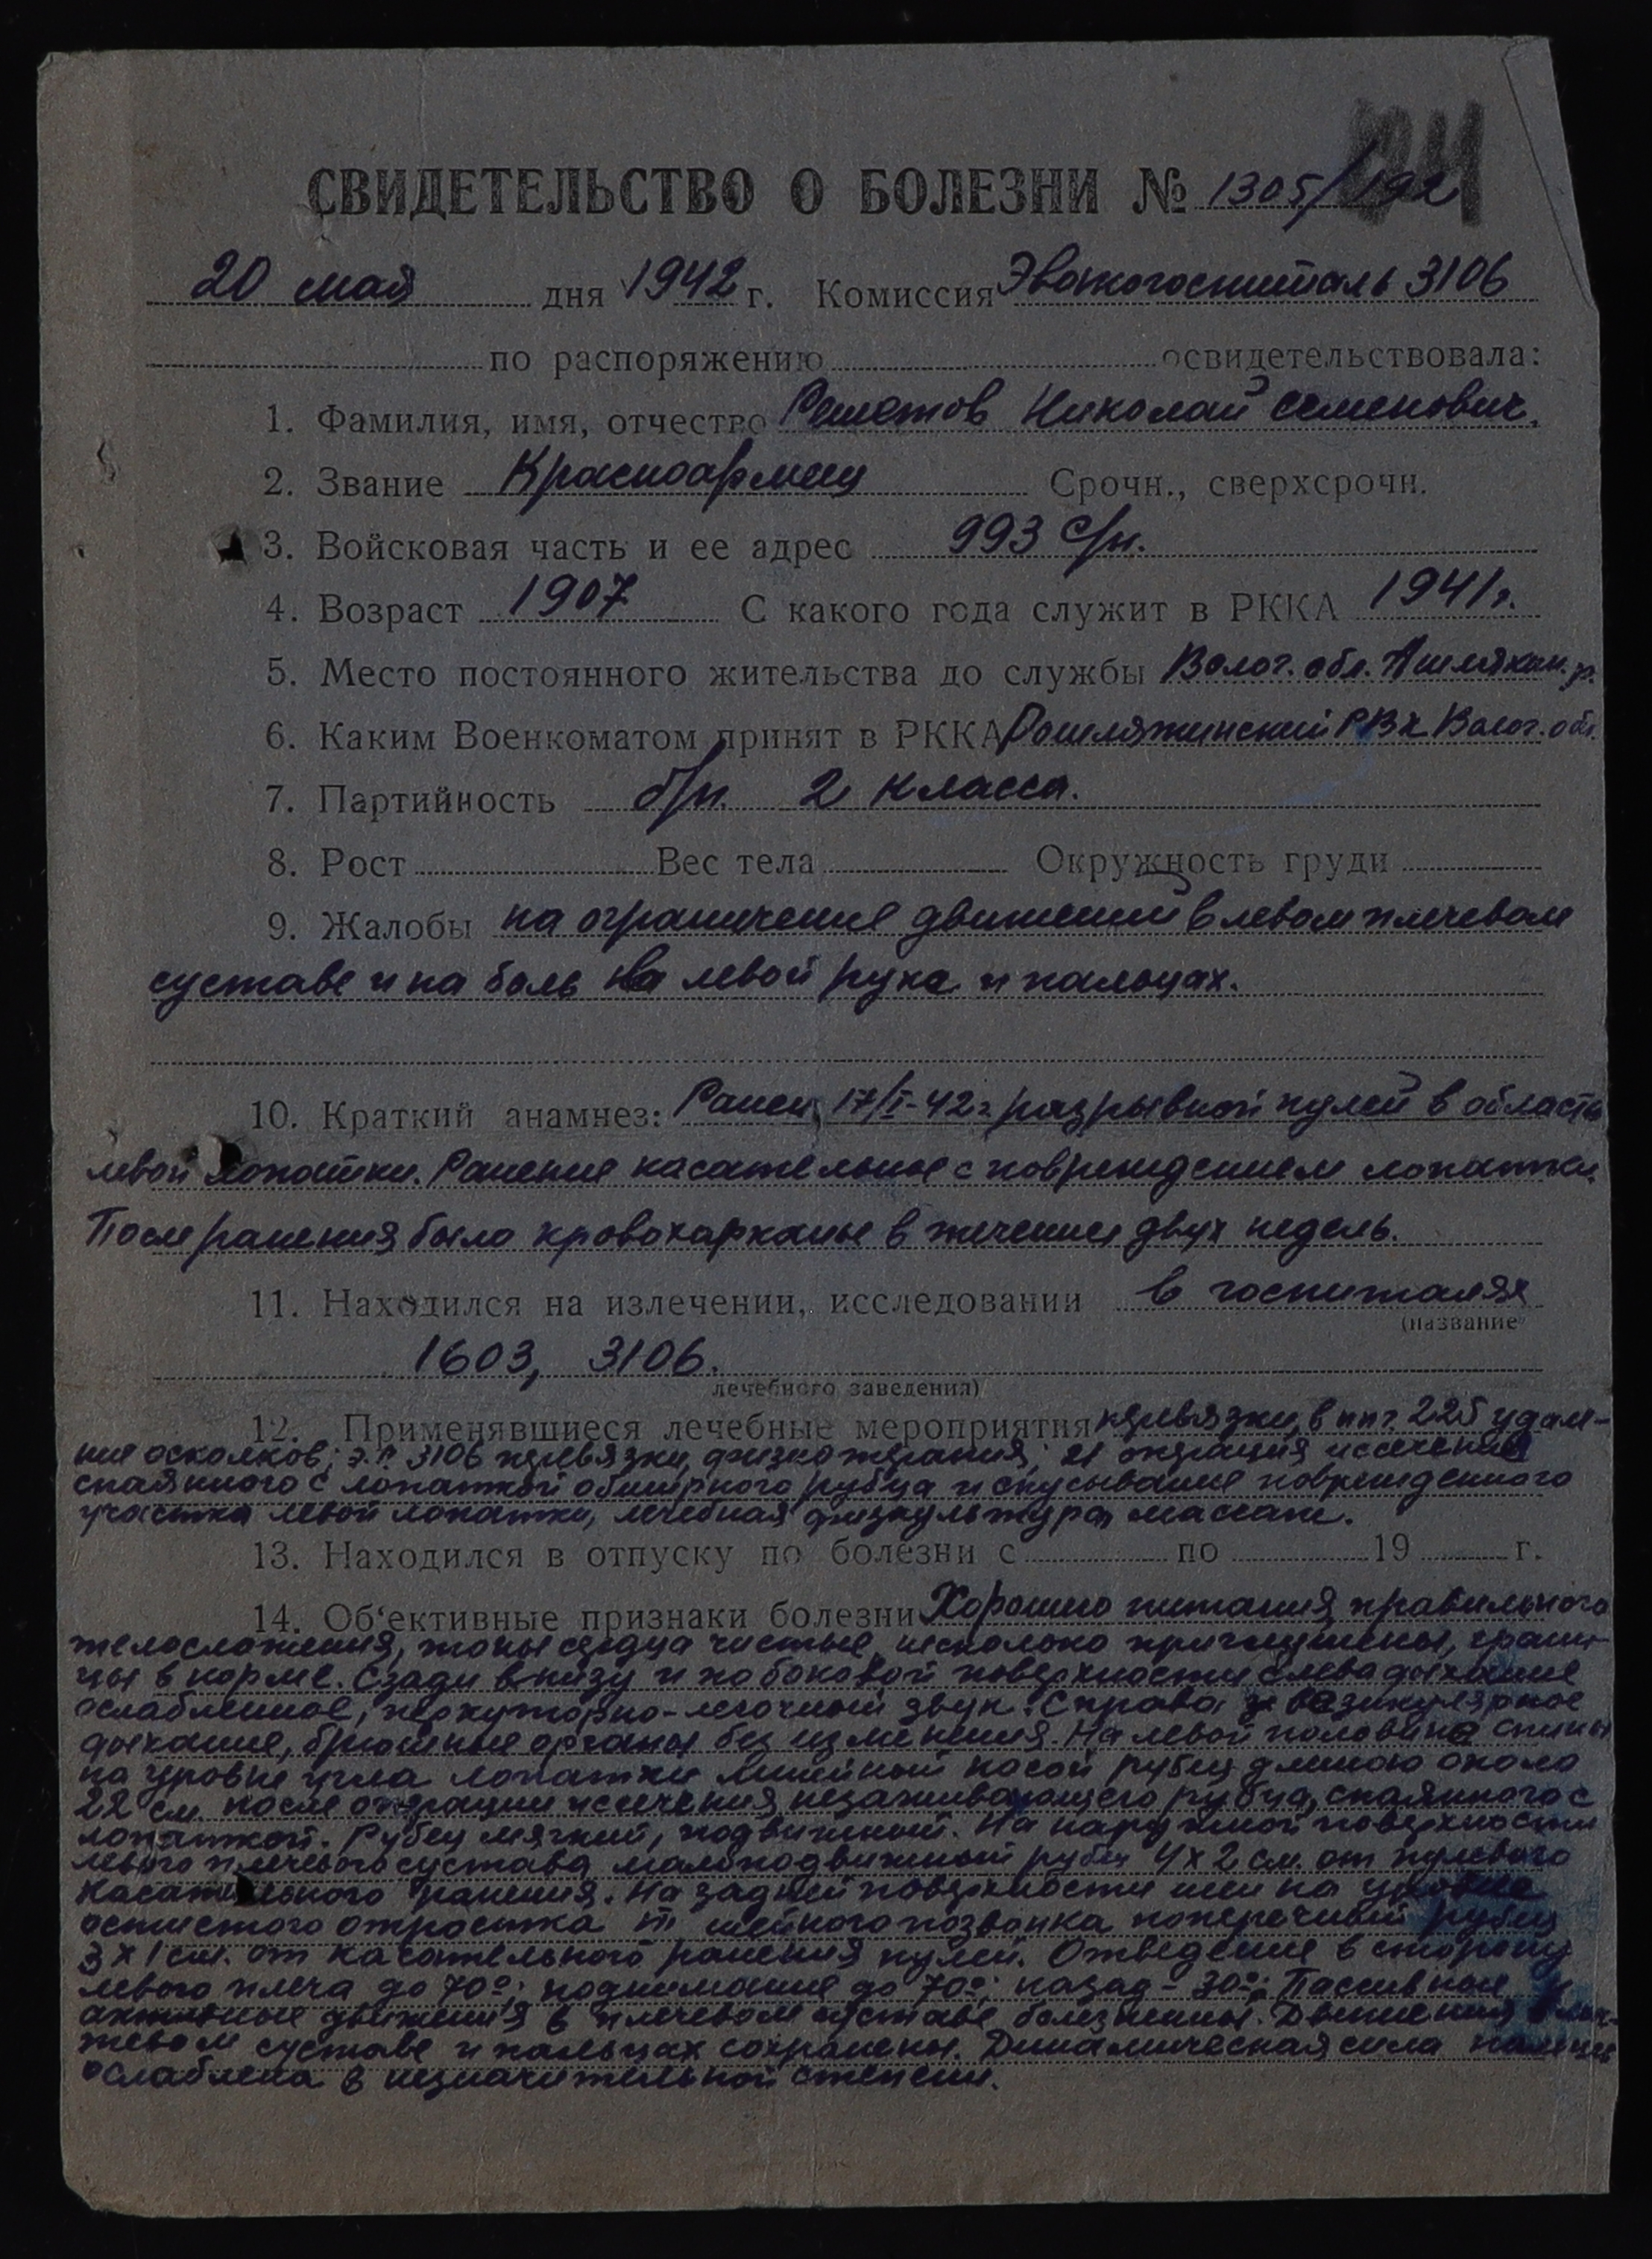 СВИДЕТЕЛЬСТВО О БОЛЕЗНИ № 1305/192
20 мая дня 1942 г. Комиссия Эвакогоспиталь 3106
по распоряжению освидетельствовала:
1. Фамилия, имя, отчество Решетов Николай Семенович.
2. Звание Красноармеец Срочн., сверхсрочн.
3. Войсковая часть и ее адрес 993 с/п.
4. Возраст 1907 С какого года служит в РККА 1941 г.
5. Место постоянного жительства до службы Волог. обл. р.
6. Каким Военкоматом принят в РККА РВК Волог. обл.
7. Партийность б/п. 2 класса.
8. Рост Вес тела Окружность груди
9. Жалобы на ограничение движений в левом плечевом
суставе и на боль на левой руке и пальцах.
10. Краткий анамнез: Ранен 17/I-42 г разрывной пулей в область
левой лопатки. Ранение касательное с повреждением лопатки.
После ранения было кровохарканье в течение двух недель.
11. Находился на излечении, исследовании в госпиталях
(название
1603, 3106.
лечебного заведения)
12. Применявшиеся лечебные мероприятия перевязки, в ппг. 225 удале-
ние осколков; э.г. 3106 перевязки, физиотерапия; операция иссечение
спаянного с лопаткой обширного рубца и скусывание поврежденного
участка левой лопатки, лечебная физкультура, массаж.
13. Находился в отпуску по болезни с по 19 г.
14. Об'ективные признаки болезни Хорошего питания, правильного
телосложения, тоны сердца чистые, несколько приглушены, грани-
цы в норме. Сзади внизу и по боковой поверхности слева дыхание
ослабленное, перкуторно-легочный звук. Справа везикулярное
дыхание, брюшные органы без изменения. На левой половине спины
на уровне угла лопатки линейный косой рубец длиною около
22 см. после операции иссечения незаживающего рубца, спаянного с
лопаткой. Рубец мягкий, подвижный. На наружной поверхности
левого плечевого сустава малоподвижный рубец 4х2 см. от пулевого
касательного ранения. На задней поверхности шеи на уровне
остистого отростка III шейного позвонка поперечный рубец
3х1 см. от касательного ранения пулей. Отведение в сторону
левого плеча до 70°; поднимание до 70°; назад - 30°; Пассивные
активные движения в плечевом суставе болезненны. Движения в лок-
тевом суставе и пальцах сохранены. Динамическая сила
ослаблена в незначительной степени.